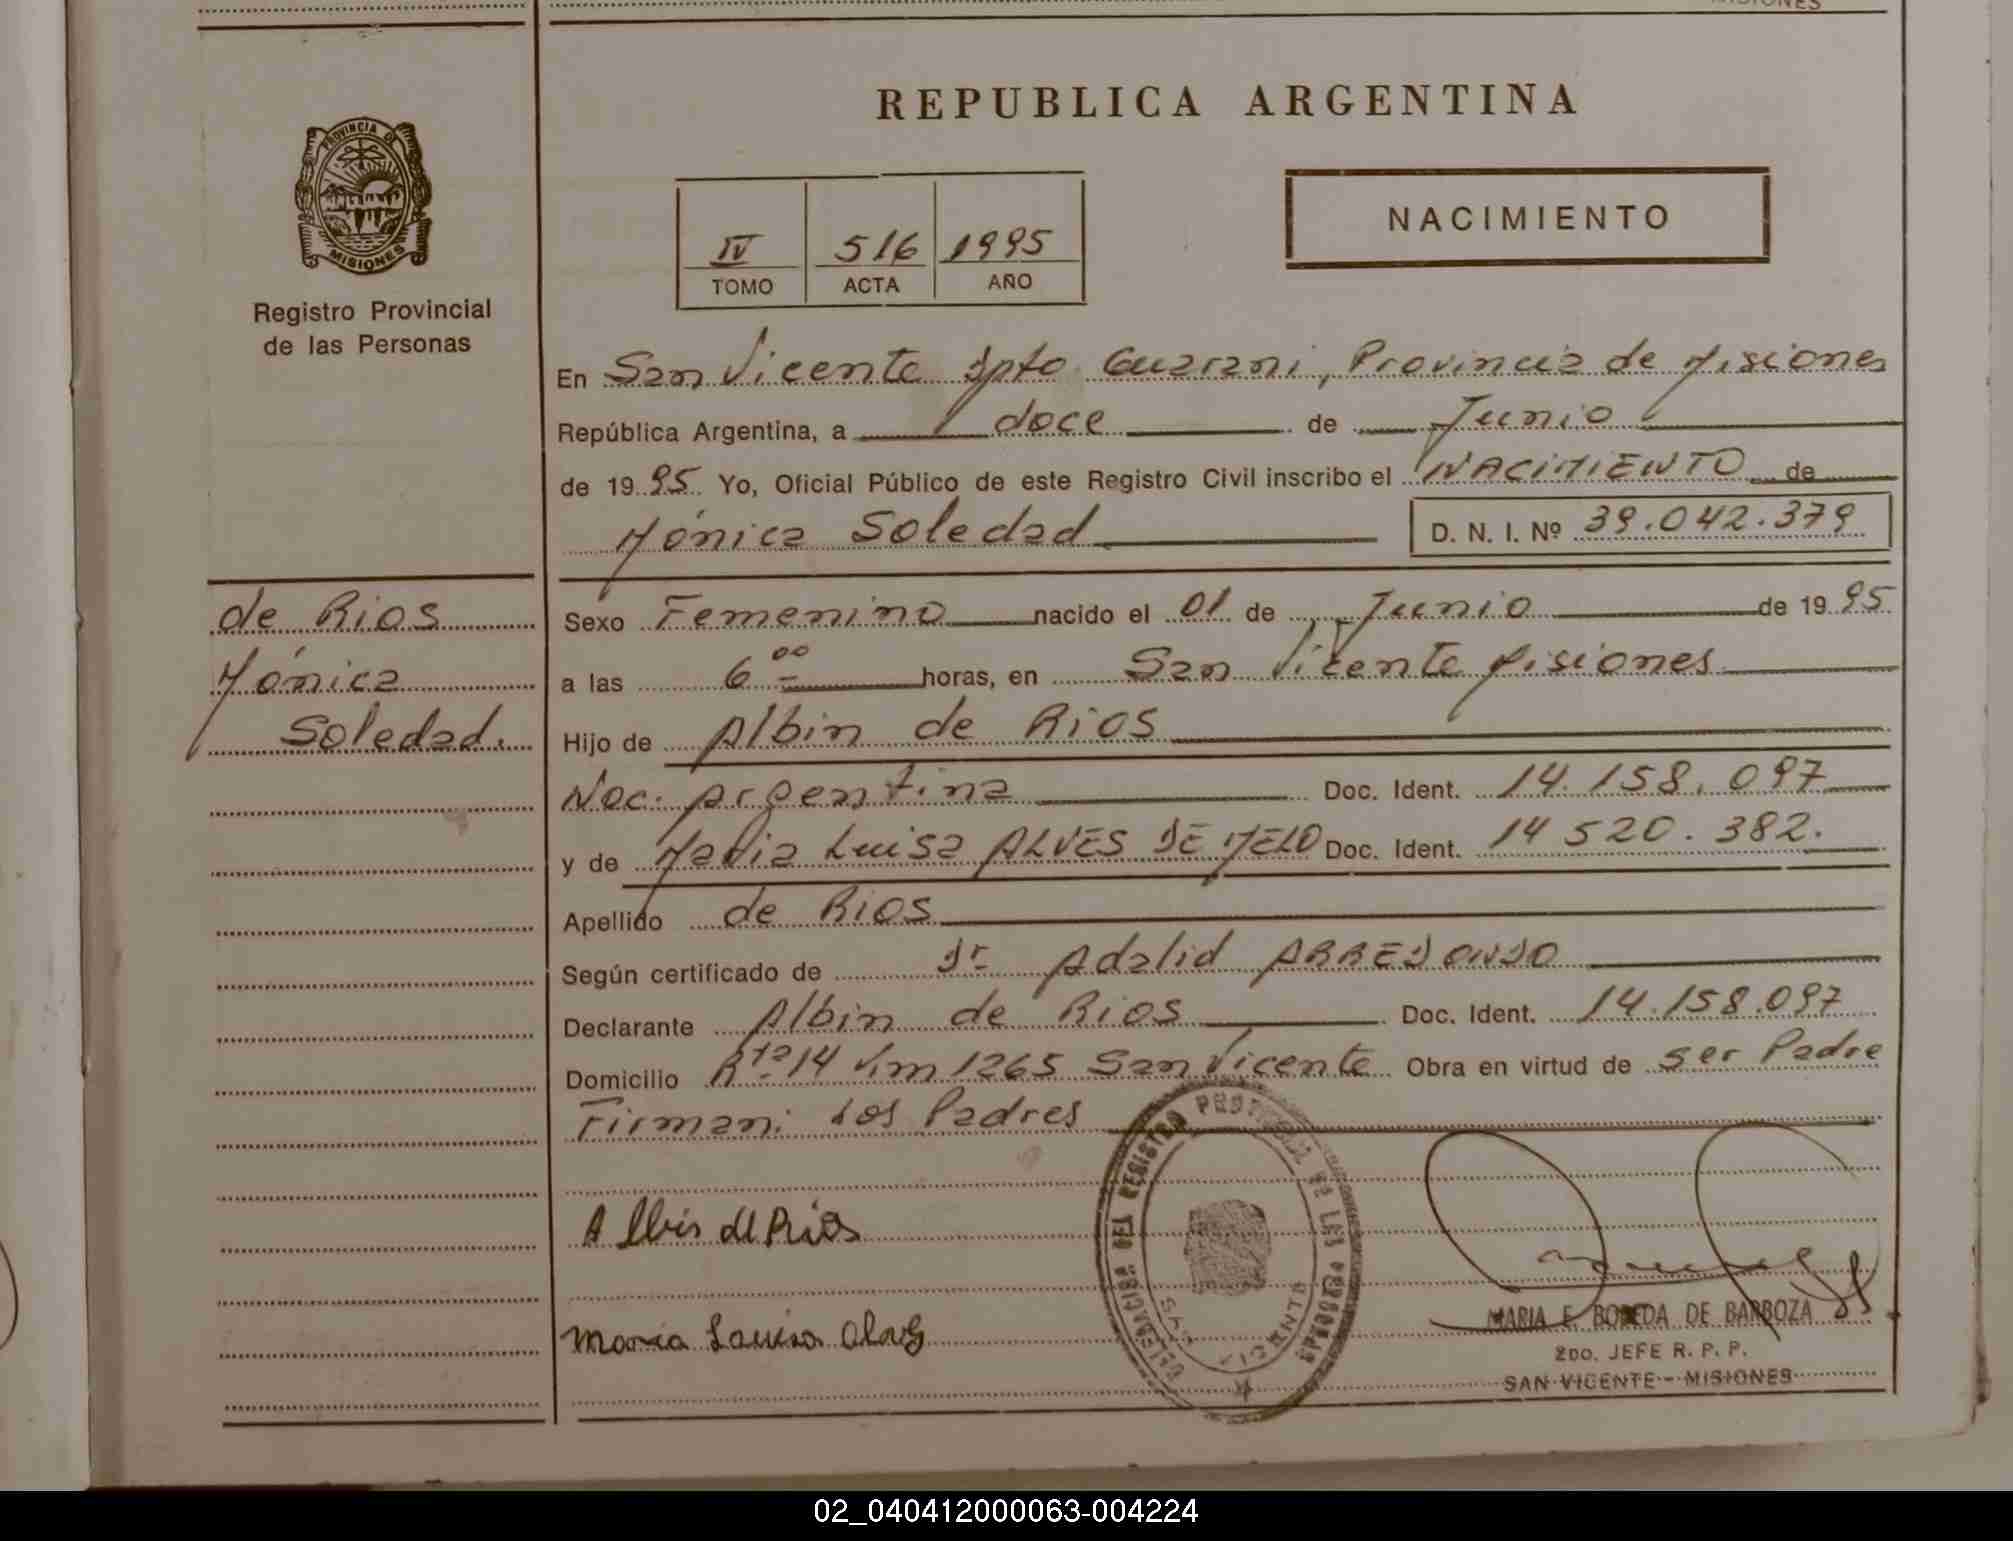 MISIONES
REPUBLICA ARGENTINA
PROVINCIA DE
MISIONES
Registro Provincial
de las Personas
IV 516 1995
TOMO ACTA AÑO
NACIMIENTO
En San Vicente Dpto Guarani, Provincia de Misiones
República Argentina, a doce de Junio
de 1995 Yo, Oficial Público de este Registro Civil inscribo el NACIMIENTO de
Mónica Soledad D. N. I. Nº 39.042.379
de Rios
Mónica
Soledad.
Sexo Femenino nacido el 01 de Junio de 1995
a las 6 00 horas, en San Vicente Misiones
Hijo de Albin de Rios
Nac. Argentina Doc. Ident. 14.158.097
y de Maria Luisa ALVES DE MELO Doc. Ident. 14 520.382.
Apellido de Rios
Según certificado de Dr Adalid ARREDONDO
Declarante Albin de Rios Doc. Ident. 14.158.097
Domicilio Rta 14 Km 1265 San Vicente Obra en virtud de ser Padre
Firman: Los Padres
Albin de Rios
Maria Luisa alves
DELEGACIÓN DEL REGISTRO PROVINCIAL DE LAS PERSONAS
SAN VICENTE
MARIA E. BOVEDA DE BARBOZA
2DO. JEFE R. P. P.
SAN VICENTE - MISIONES
02_040412000063-004224